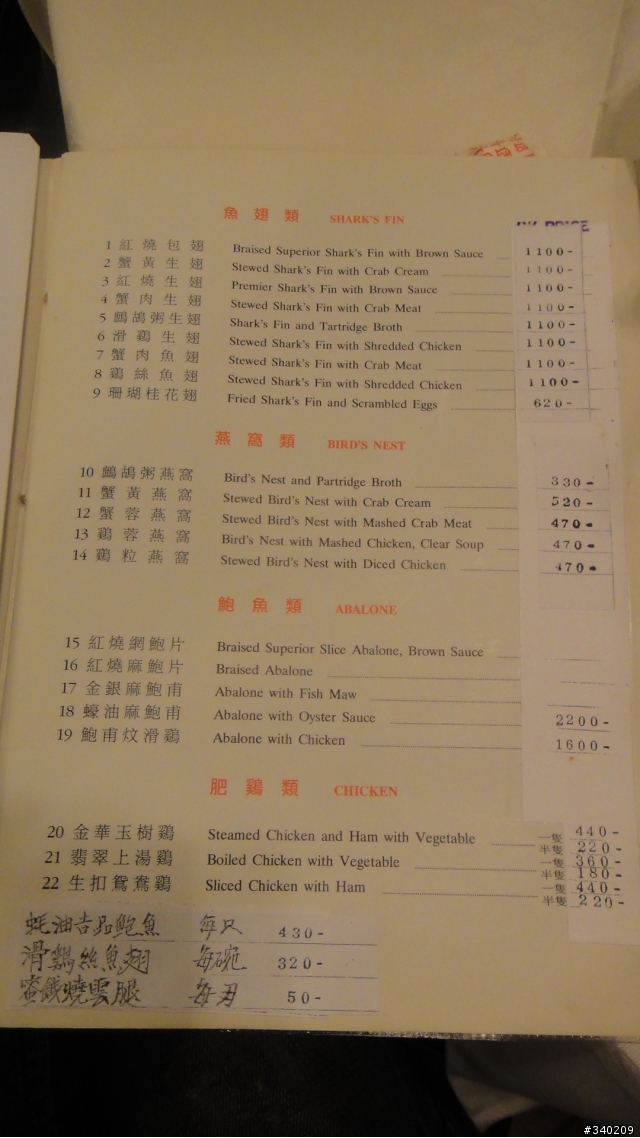 魚翅類 SHARK'S FIN
PRICE
1 紅燒包翅 Braised Superior Shark's Fin with Brown Sauce 1100-
2 蟹黃生翅 Stewed Shark's Fin with Crab Cream 1100-
3 紅燒生翅 Premier Shark's Fin with Brown Sauce 1100-
4 蟹肉生翅 Stewed Shark's Fin with Crab Meat 1100-
5 鷓鴣粥生翅 Shark's Fin and Tartridge Broth 1100-
6 滑鷄生翅 Stewed Shark's Fin with Shredded Chicken 1100-
7 蟹肉魚翅 Stewed Shark's Fin with Crab Meat 1100-
8 鷄絲魚翅 Stewed Shark's Fin with Shredded Chicken 1100-
9 珊瑚桂花翅 Fried Shark's Fin and Scrambled Eggs 620-
燕窩類 BIRD'S NEST
10 鷓鴣粥燕窩 Bird's Nest and Partridge Broth 330-
11 蟹黃燕窩 Stewed Bird's Nest with Crab Cream 520-
12 蟹蓉燕窩 Stewed Bird's Nest with Mashed Crab Meat 470-
13 鷄蓉燕窩 Bird's Nest with Mashed Chicken, Clear Soup 470-
14 鷄粒燕窩 Stewed Bird's Nest with Diced Chicken 470-
鮑魚類 ABALONE
15 紅燒網鮑片 Braised Superior Slice Abalone, Brown Sauce
16 紅燒麻鮑片 Braised Abalone
17 金銀麻鮑甫 Abalone with Fish Maw
18 蠔油麻鮑甫 Abalone with Oyster Sauce 2200-
19 鮑甫炆滑鷄 Abalone with Chicken 1600-
肥鷄類 CHICKEN
20 金華玉樹鷄 Steamed Chicken and Ham with Vegetable 一隻 440-
半隻 220-
21 翡翠上湯鷄 Boiled Chicken with Vegetable 一隻 360-
半隻 180-
22 生扣鴛鴦鷄 Sliced Chicken with Ham 一隻 440-
半隻 220-
蚝油吉品鮑魚 每只 430-
滑鷄絲魚翅 每碗 320-
燒雲腿 每 50-
#340209